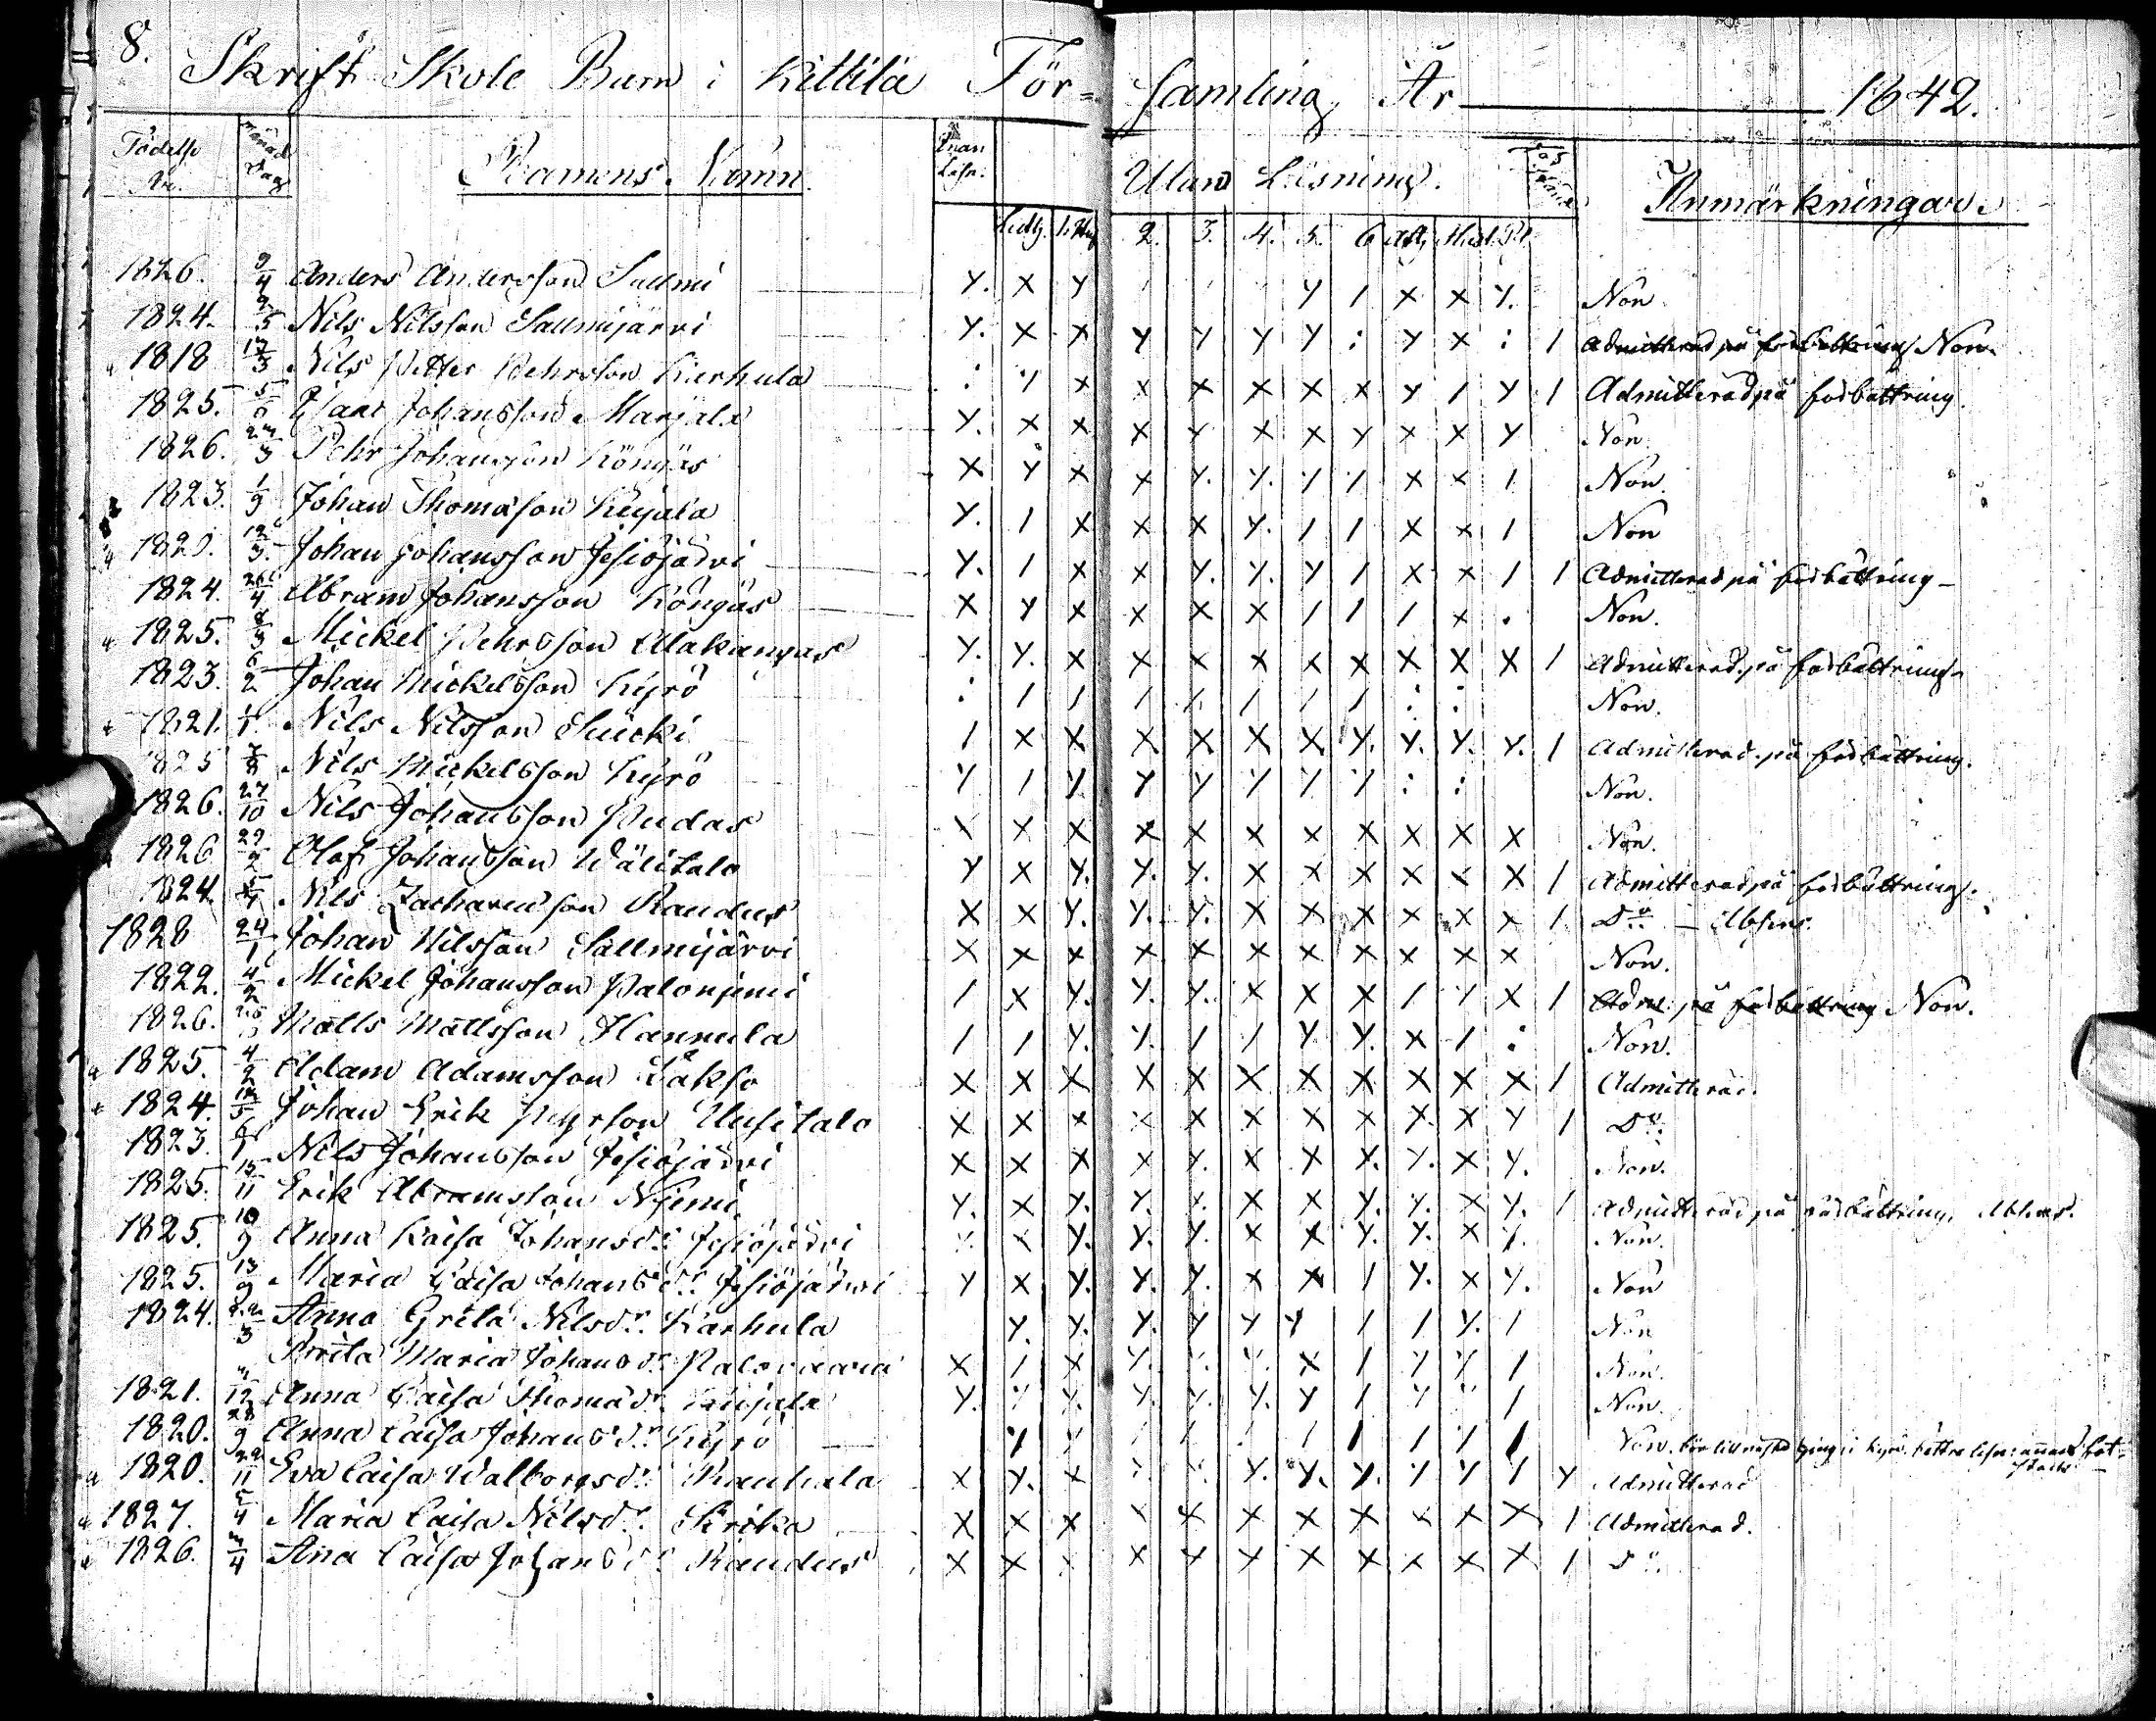 8. Skrift Skole Barn i Kittilä För= samling År 1842.
Födelse År. Månad Dag Barnens Namn. Innan Läsn. Utan Läsning. Anmärkningar.
2. 3. 4. 5. 6
1826. 9/4 Anders Andersson Sallmi Y. X Y / / / Y / X X Y. Non
1824. 9/5 Nils Nilsson Sallmijärvi Y. X X Y Y Y Y : Y X : / Admitterad på förbättring Non.
1818 17/3 Nils Petter Pehrsson Kerhula : Y X X X X X X Y / Y / Admitterad på förbättring.
1825. Isaac Johansson Marjala Y. X X X Y X X Y X X Y Non
1826. Pehr Johansson Köngäs X Y X X Y. Y. Y / X X / Non.
1823. 1/9 Johan Thomasson Kujala Y. / X X X Y. / / X X / Non
Johan Johansson Jesiöjärvi Y. / X X Y. Y. Y / X X / / Admitterad på förbättring –
1824. 26/4 Abram Johansson Köngäs X Y X X X X / / / X . Non.
1825. Mickel Pehrsson Alakangas Y. Y. X X X X X X X X X / Admitterad på förbättring
1823. 6/2 Johan Mickelsson Kyrö : / / / / / / / : : Non.
1821. 1/1 Nils Nilsson Suicki / X X X X X X Y. Y. Y. Y. / Admitterad på förbättring.
1825 Nils Mickelsson Kyrö Y / Y Y Y Y Y Y : : Non.
1826. 27/10 Nils Johansson Pudas X X X X X X X X X X X Non.
1826 Olof Johansson Wälitalo Y X Y. Y. Y. X X X X X X / Admitterad på förbättring.
1824. Nils Zachariasson Raudus X X Y. Y. Y. X X X X X X / D:o – Absens.
1828 24/1 Johan Nilsson Sallmijärvi X X X X X X X X X X X Non.
1822. 4/2 Mickel Johansson Palonjemi / X Y. Y. Y. X X X / Y X / Adm. på förbättring Non.
1826. Matts Mattsson Hannula / / Y. Y. / / Y Y. X / : Non.
1825. 4/2 Adam Adamsson Låkso X X X X X X X X X X X / Admitterad.
1824. 12/5 Johan Erik Uusitalo X X X X X X X X X X Y / D:o
1823. 6/1 Nils Johansson Jesiöjärvi X X X X Y. X X X. Y. X Y. Non.
1825. 15/11 Erik Abramsson Njemi Y. X Y. Y. Y. X X Y. Y. X Y. / Admitterad på förbättring. Absens.
1825. 10/9 Anna Kaisa Johansd:r Jesiöjärvi Y. X Y. Y. Y. X X Y. Y. X Y. Non.
1825. 13/9 Maria Caisa Johansd:r Jesiöjärvi Y X Y. Y. Y. X X / Y. X Y. Non
1824. 22/3 Anna Greta Nilsd:r Karhula Y. Y. Y. Y Y Y / / Y. / Non
Brita Maria Johansd:r Palovaara X / X Y. Y. Y. X / Y Y / Non.
1821. Anna Caisa Thomasd:r Kujala Y. Y Y. Y. Y. Y. Y / Y Y / Non.
1820. 28/9 Anna Caisa Johansd:r Kyrö Y Y / / / / / / / / Non.
1820. 22/11 Eva Caisa Walborgsd:r Rauhala X Y. X Y. Y. Y. Y. Y. Y Y Y Y Admitterad
1827. 5/4 Maria Caisa Nilsd:r Krika X X X X X X X X X X X / Admitterad.
1826. Ana Caisa Johansd:r Raudus X X X X X X X X X X X / D:o